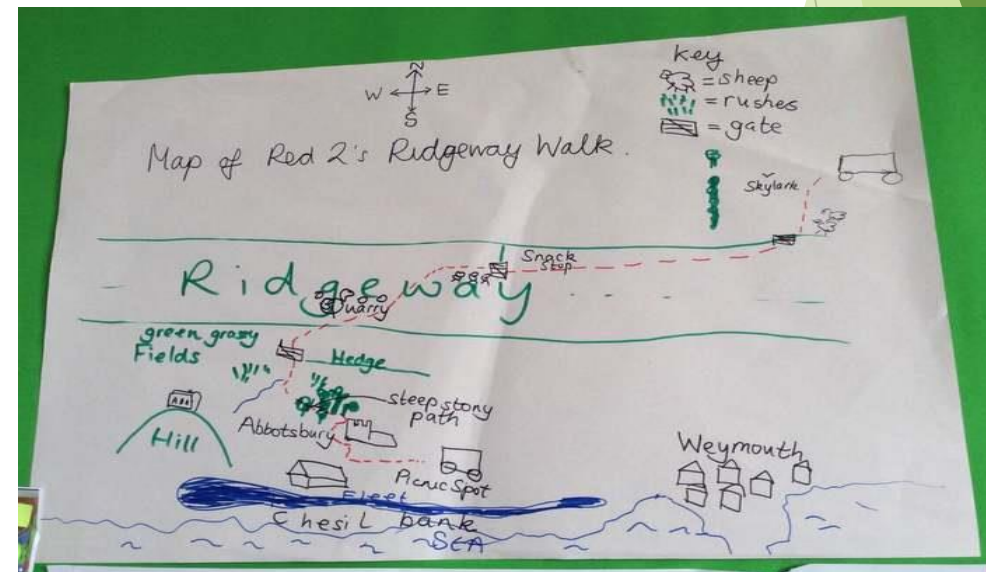 N
W E
S
Key
= sheep
= rushes
= gate
Map of Red 2's Ridgeway Walk.
Skylark
Snack
Stop
Ridgeway
Quarry
green grassy
Fields
Hedge
steep stony
path
Abbotsbury
Hill
Picnic Spot
Weymouth
Fleet
Chesil bank
SEA